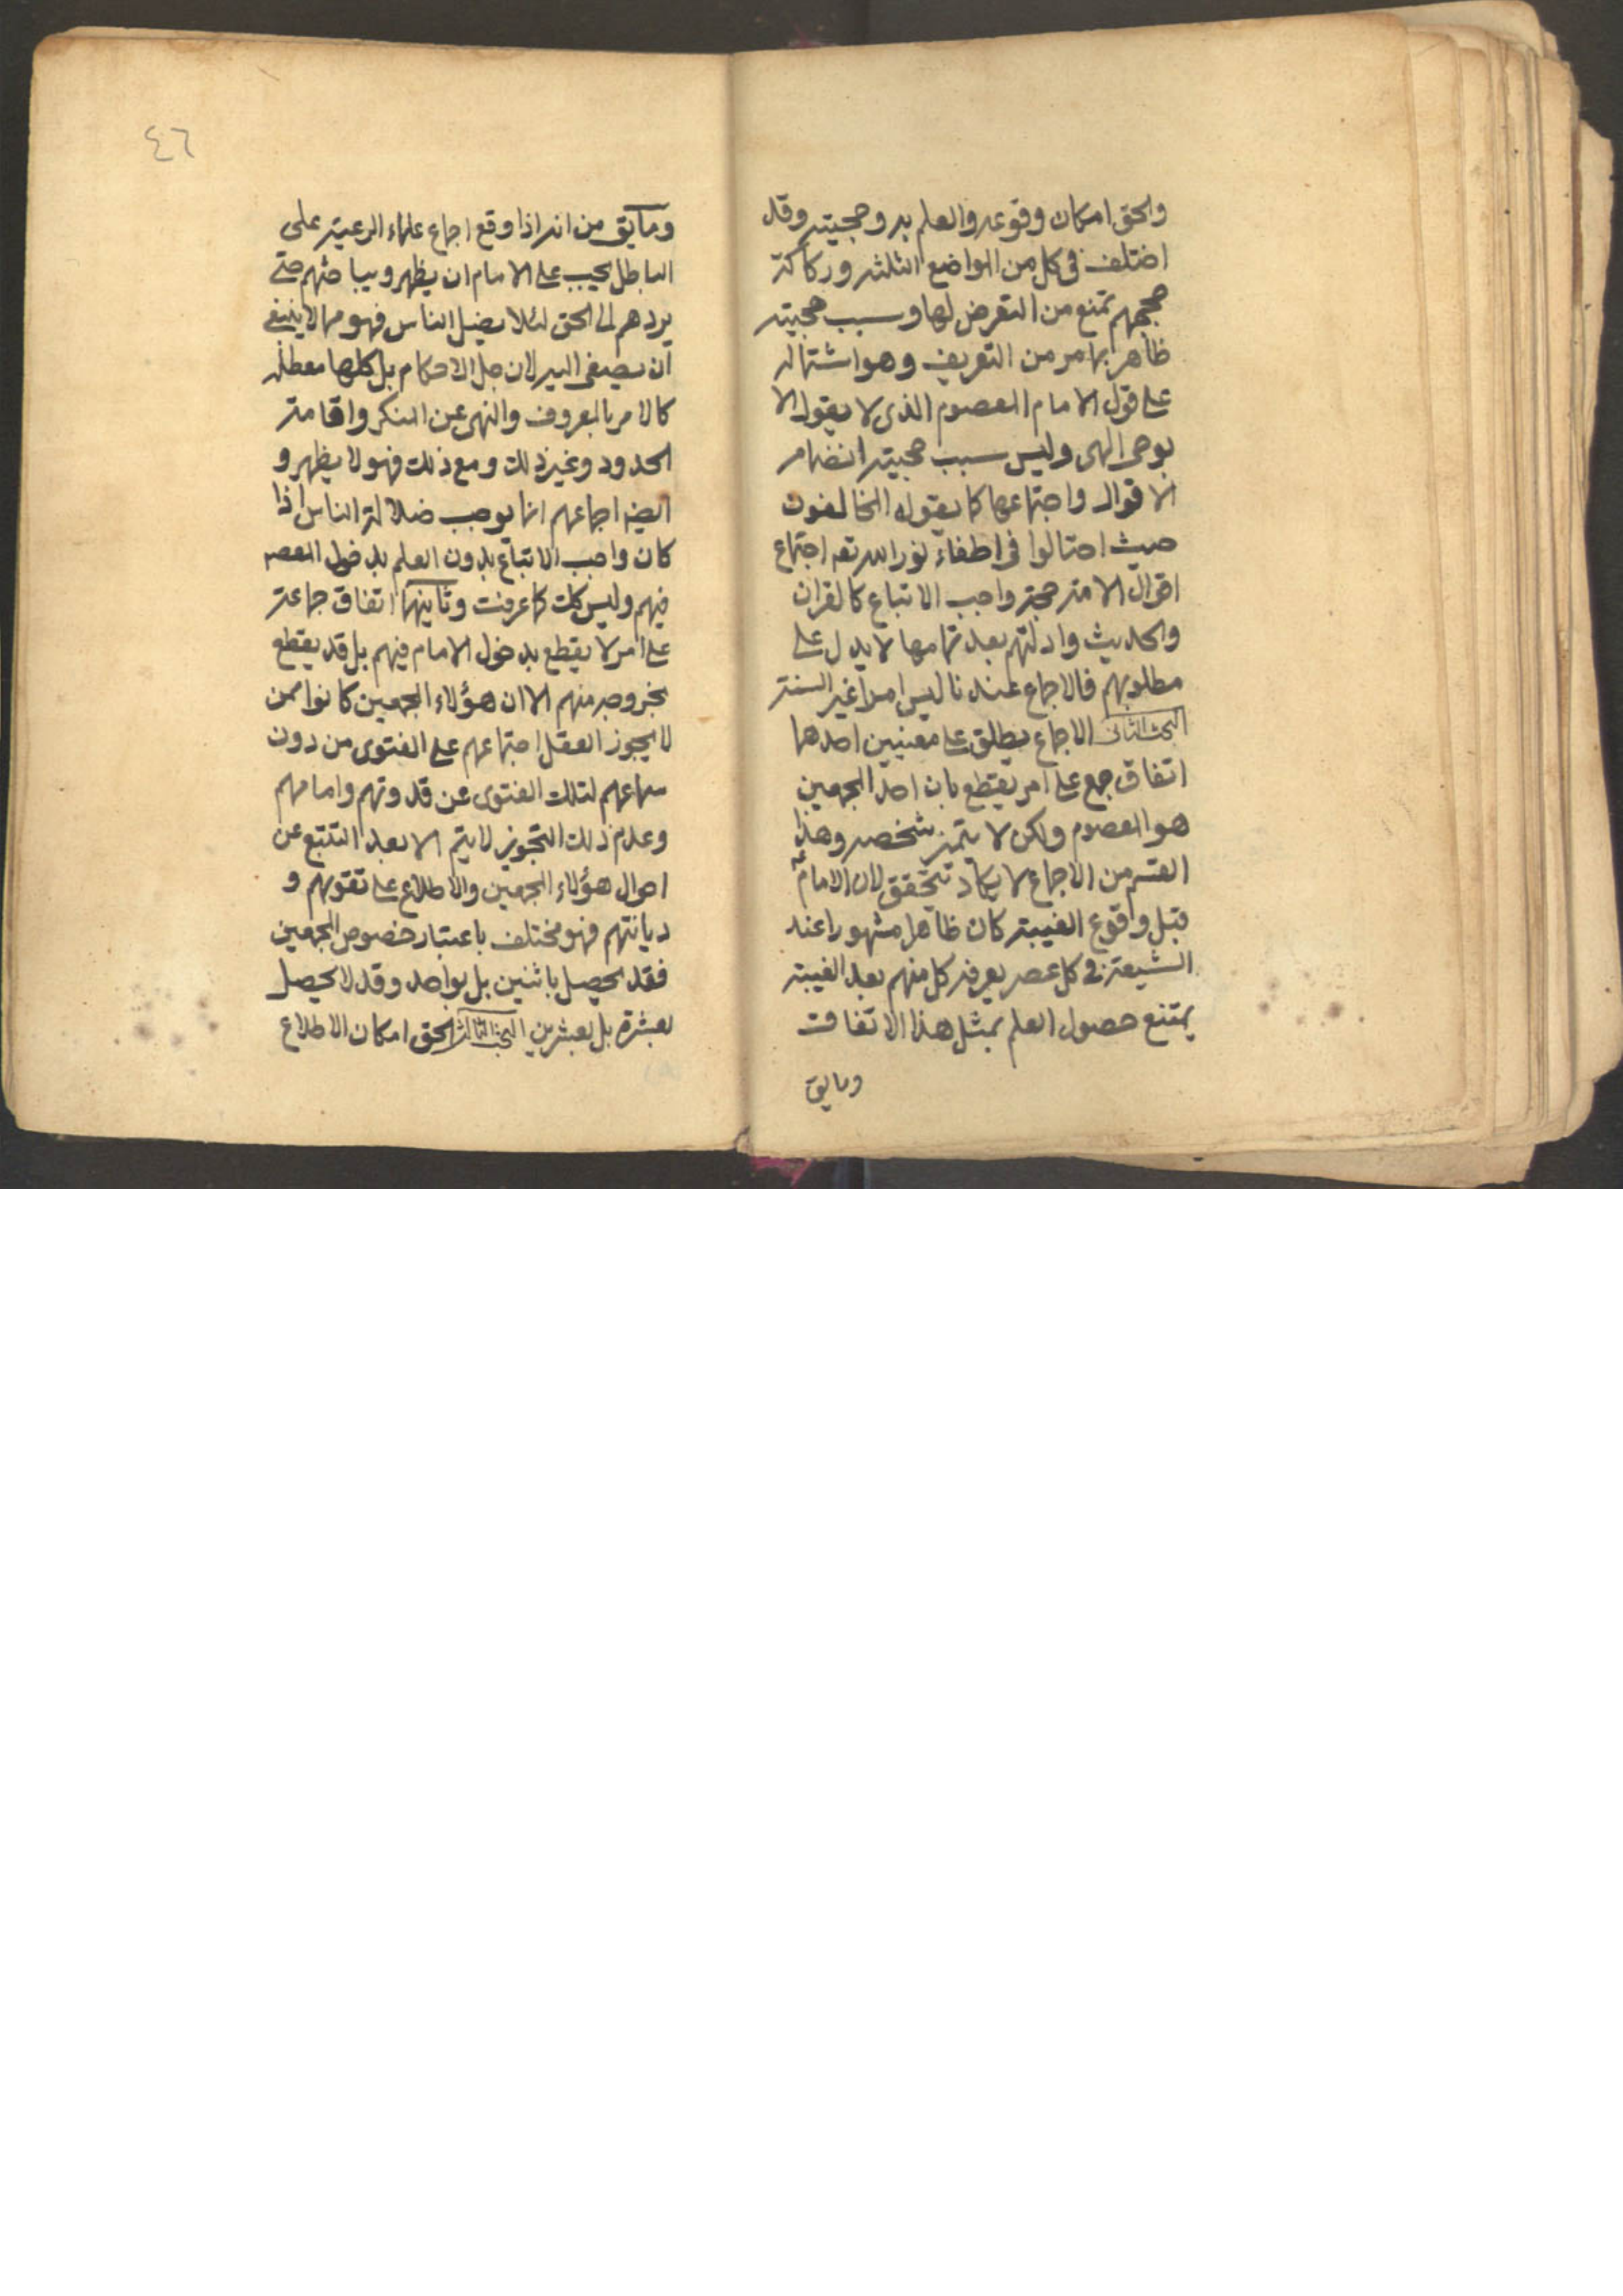 والحق امكان وقوعه والعلم به وحجيته وقد
اختلف فى كل من المواضع الثلثه وركاكة
حججهم تمنع من التعرض لها وسبب حجيته
ظاهر بما مر من التعريف وهو اشتماله
على قول الامام المعصوم الذى لا يقول الا
بوحى الهى وليس سبب حجيته انضمام
الاقوال واجتماعها كما يقوله المخالفون
حيث احتالوا فى اطفاء نور الله تعه اجتماع
اقوال الامة حجة واجب الاتباع كالقران
والحديث وادلتهم بعد تمامها لا يدل على
مطلوبهم فالاجماع عندنا ليس امرا غير السنة
البحث الثانى الاجماع يطلق على معنيين احدهما
اتفاق جمع على امر يقطع بان احد المجمعين
هو المعصوم ولكن لا يتميز شخصه وهذا
القسم من الاجماع لا يكاد تتحقق لان الامام ع
قبل وقوع الغيبة كان ظاهرا مشهورا عند
الشيعة فى كل عصر يعرفه كل منهم بعد الغيبة
يمتنع حصول العلم بمثل هذا الاتفاق
وما يق
٤٦
وما يق من انه اذا وقع اجماع علماء الرعية على
الباطل يجب على الامام ان يظهر ويباحثهم حتى
يردهم الى الحق لئلا يضل الناس فهو مما لا ينبغى
ان يصغى اليه لان جل الاحكام بل كلها معطلة
كالامر بالمعروف والنهى عن المنكر واقامة
الحدود وغير ذلك ومع ذلك فهو لا يظهر و
ايضه اجماعهم انما يوجب ضلالة الناس اذا
كان واجب الاتباع بدون العلم بدخول المعصه
فيهم وليس كك كما عرفت وثانيهما اتفاق جماعة
على امر لا يقطع بدخول الامام فيهم بل قد يقطع
بخروجه منهم الا ان هؤلاء المجمعين كانوا ممن
لا يجوز العقل اجتماعهم على الفتوى من دون
سماعهم لتلك الفتوى عن قدوتهم وامامهم
وعدم ذلك التجويز لا يتم الا بعد التتبع عن
احوال هؤلاء المجمعين والاطلاع على تقويهم و
ديانتهم فهو مختلف باعتبار خصوص المجمعين
فقد يحصل باثنين بل بواحد وقد لا يحصل
بعشرة بل بعشرين البحث الثالث الحق امكان الاطلاع